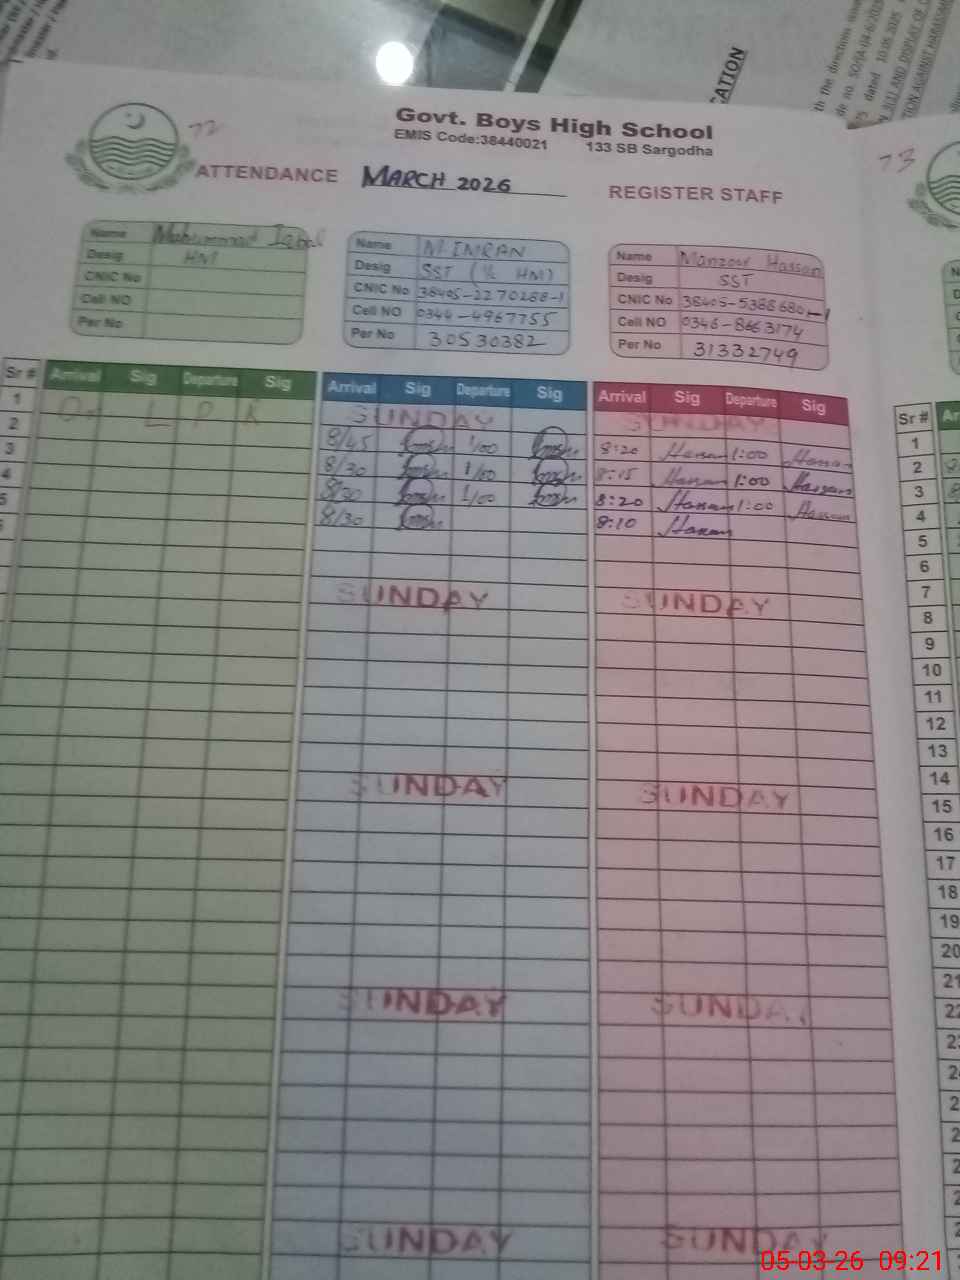 CATION
th the directions issued
dated 10.06.2025
AND DISPLAY OF
TION AGAINST HARASSMENT
Govt. Boys High School
EMIS Code:38440021 133 SB Sargodha
72
ATTENDANCE MARCH 2026 REGISTER STAFF
73
Name Muhammad Iqbal
Desig HM
CNIC No
Cell NO
Per No
Name M. IMRAN
Desig SST (I/C HM)
CNIC No 38405-2270288-1
Cell NO 0344-4967755
Per No 30530382
Name Manzoor Hassan
Desig SST
CNIC No 38405-5388680-1
Cell NO 0346-8663174
Per No 31332749
Sr # Arrival Sig Departure Sig Arrival Sig Departure Sig Arrival Sig Departure Sig Sr #
1 On L P R SUNDAY SUNDAY 1
2 8/45 1/00 8:20 Hassan 1:00 Hassan 2
3 8/30 1/00 8:15 Hassan 1:00 Hassan 3
4 8/30 1/00 8:20 Hassan 1:00 Hassan 4
5 8/30 8:10 Hassan 5
6
7
SUNDAY SUNDAY
8
9
10
11
12
13
14
SUNDAY SUNDAY
15
16
17
18
19
20
21
SUNDAY SUNDAY
22
SUNDAY SUNDAY
05-03-26 09:21